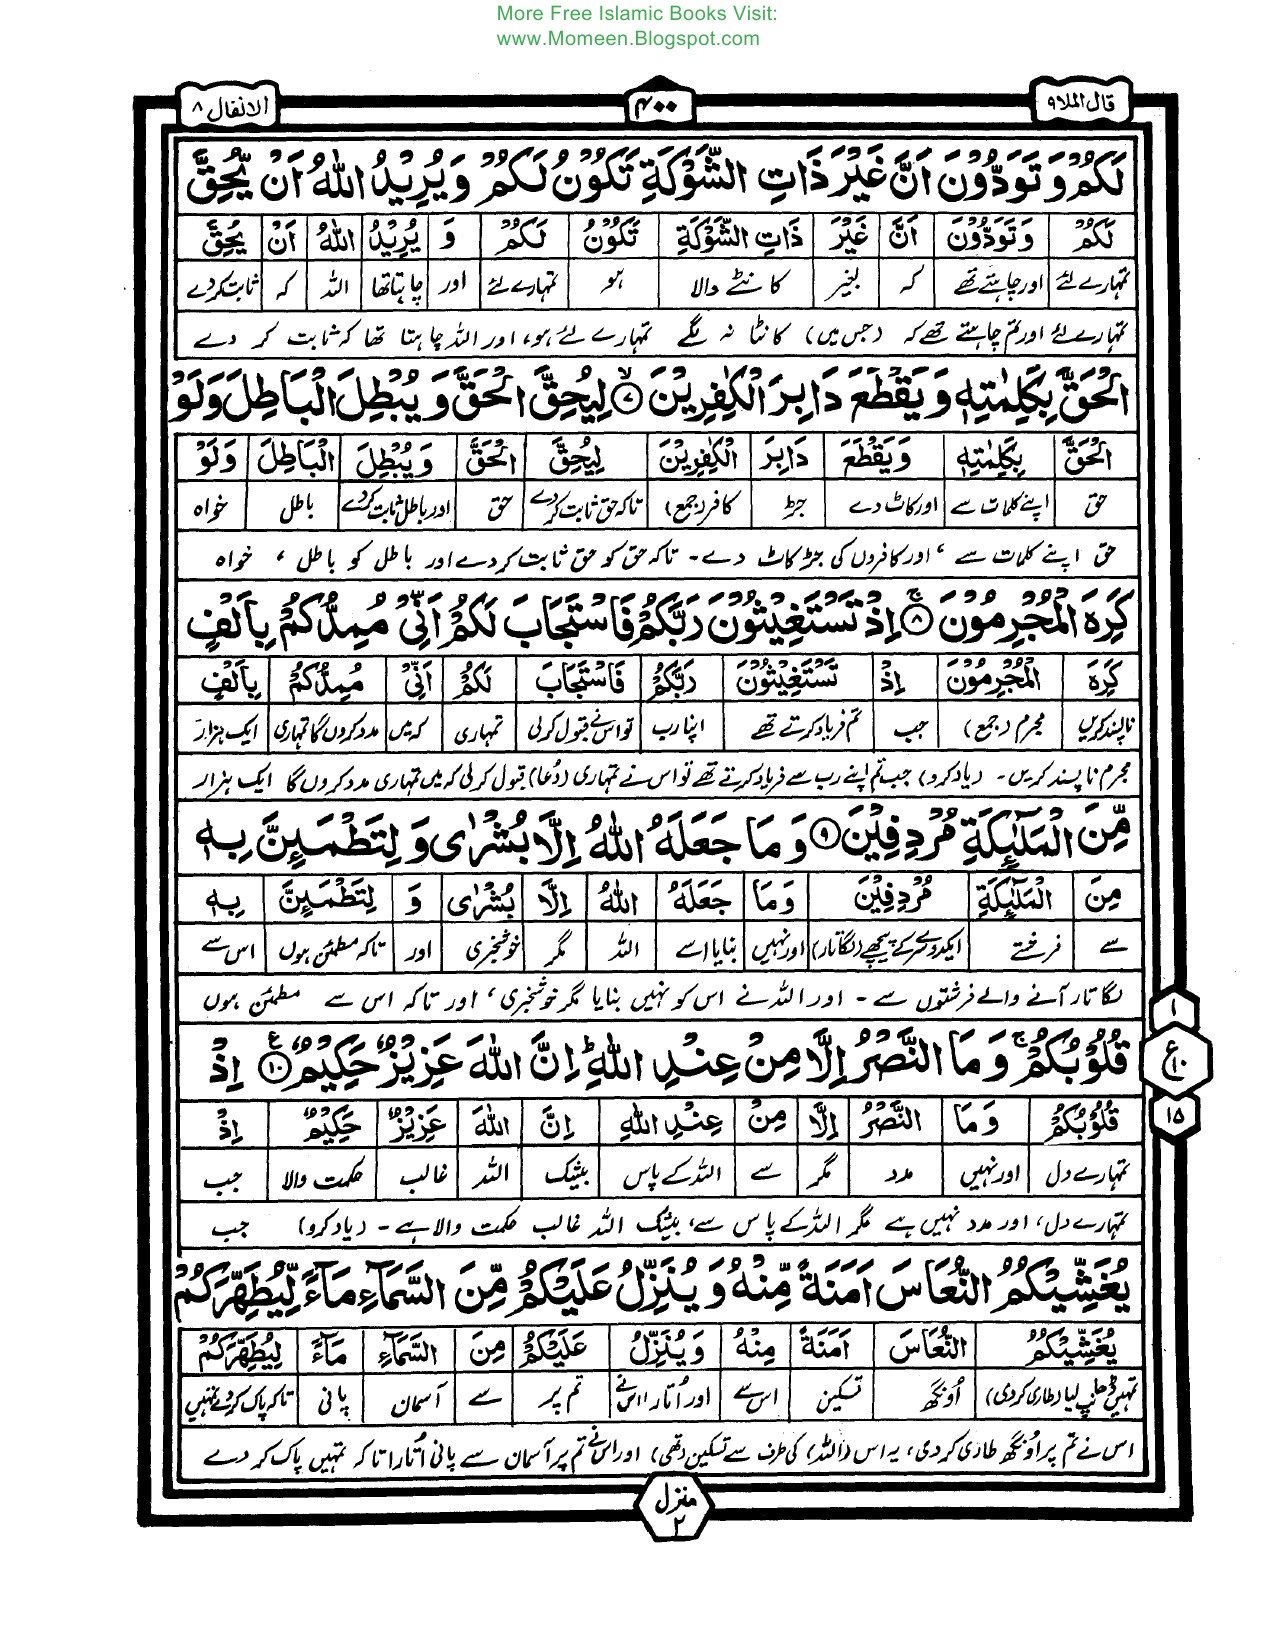 More Free Islamic Books Visit:
www.Momeen.Blogspot.com
قال الملا ۹
۴۰۰
الانفال ۸
لَكُمْ وَتَوَدُّوْنَ اَنَّ غَيْرَ ذَاتِ الشَّوْكَةِ تَكُوْنُ لَكُمْ وَيُرِيْدُ اللّٰهُ اَنْ يُّحِقَّ
لَكُمْ وَتَوَدُّوْنَ اَنَّ غَيْرَ ذَاتِ الشَّوْكَةِ تَكُوْنُ لَكُمْ وَ يُرِيْدُ اللّٰهُ اَنْ يُّحِقَّ
تمہارے لئے اور چاہتے تھے کہ بغیر کانٹے والا ہو تمہارے لئے اور چاہتا تھا اللہ کہ ثابت کردے
تمہارے لئے اور تم چاہتے تھے کہ (جس میں) کانٹا نہ لگے تمہارے لئے ہو، اور اللہ چاہتا تھا کہ ثابت کر دے
الْحَقَّ بِكَلِمٰتِهٖ وَيَقْطَعَ دَابِرَ الْكٰفِرِيْنَ ۙ۷ لِيُحِقَّ الْحَقَّ وَيُبْطِلَ الْبَاطِلَ وَلَوْ
الْحَقَّ بِكَلِمٰتِهٖ وَيَقْطَعَ دَابِرَ الْكٰفِرِيْنَ لِيُحِقَّ الْحَقَّ وَيُبْطِلَ الْبَاطِلَ وَلَوْ
حق اپنے کلمات سے اور کاٹ دے جڑ کافر (جمع) تاکہ حق ثابت کردے حق اور باطل ثابت کردے باطل خواہ
حق اپنے کلمات سے ، اور کافروں کی جڑ کاٹ دے۔ تاکہ حق کو حق ثابت کردے اور باطل کو باطل ، خواہ
كَرِهَ الْمُجْرِمُوْنَ ۚ۸ اِذْ تَسْتَغِيْثُوْنَ رَبَّكُمْ فَاسْتَجَابَ لَكُمْ اَنِّيْ مُمِدُّكُمْ بِاَلْفٍ
كَرِهَ الْمُجْرِمُوْنَ اِذْ تَسْتَغِيْثُوْنَ رَبَّكُمْ فَاسْتَجَابَ لَكُمْ اَنِّيْ مُمِدُّكُمْ بِاَلْفٍ
ناپسند کریں مجرم (جمع) جب تم فریاد کرتے تھے اپنا رب تو اس نے قبول کرلی تمہاری کہ میں مدد کروں گا تمہاری ایک ہزار
مجرم ناپسند کریں۔ (یاد کرو) جب تم اپنے رب سے فریاد کرتے تھے تو اس نے تمہاری (دُعا) قبول کرلی کہ میں تمہاری مدد کروں گا ایک ہزار
مِّنَ الْمَلٰٓئِكَةِ مُرْدِفِيْنَ ۹ وَمَا جَعَلَهُ اللّٰهُ اِلَّا بُشْرٰى وَلِتَطْمَئِنَّ بِهٖ
مِنَ الْمَلٰٓئِكَةِ مُرْدِفِيْنَ وَمَا جَعَلَهُ اللّٰهُ اِلَّا بُشْرٰى وَ لِتَطْمَئِنَّ بِهٖ
سے فرشتے ایک دوسرے کے پیچھے (لگاتار) اور نہیں بنایا اسے اللہ مگر خوشخبری اور تاکہ مطمئن ہوں اس سے
لگاتار آنے والے فرشتوں سے۔ اور اللہ نے اس کو نہیں بنایا مگر خوشخبری ، اور تاکہ اس سے مطمئن ہوں
قُلُوْبُكُمْ ۚ وَمَا النَّصْرُ اِلَّا مِنْ عِنْدِ اللّٰهِ ؕ اِنَّ اللّٰهَ عَزِيْزٌ حَكِيْمٌ ۧ۱۰ اِذْ
۱
ع ۱۰
۱۵
قُلُوْبُكُمْ وَمَا النَّصْرُ اِلَّا مِنْ عِنْدِ اللّٰهِ اِنَّ اللّٰهَ عَزِيْزٌ حَكِيْمٌ اِذْ
تمہارے دل اور نہیں مدد مگر سے اللہ کے پاس بیشک اللہ غالب حکمت والا جب
تمہارے دل، اور مدد نہیں ہے مگر اللہ کے پاس سے، بیشک اللہ غالب حکمت والا ہے۔ (یاد کرو) جب
يُغَشِّيْكُمُ النُّعَاسَ اَمَنَةً مِّنْهُ وَيُنَزِّلُ عَلَيْكُمْ مِّنَ السَّمَآءِ مَآءً لِّيُطَهِّرَكُمْ
يُغَشِّيْكُمُ النُّعَاسَ اَمَنَةً مِّنْهُ وَيُنَزِّلُ عَلَيْكُمْ مِّنَ السَّمَآءِ مَآءً لِّيُطَهِّرَكُمْ
تمہیں ڈھانپ لیا (طاری کردی) اُونگھ تسکین اس سے اور اُتارا اس نے تم پر سے آسمان پانی تاکہ پاک کردے تمہیں
اس نے تم پر اُونگھ طاری کردی، یہ اس (اللہ) کی طرف سے تسکین (تھی) اور اس نے تم پر آسمان سے پانی اُتارا تاکہ تمہیں پاک کر دے
منزل ۲